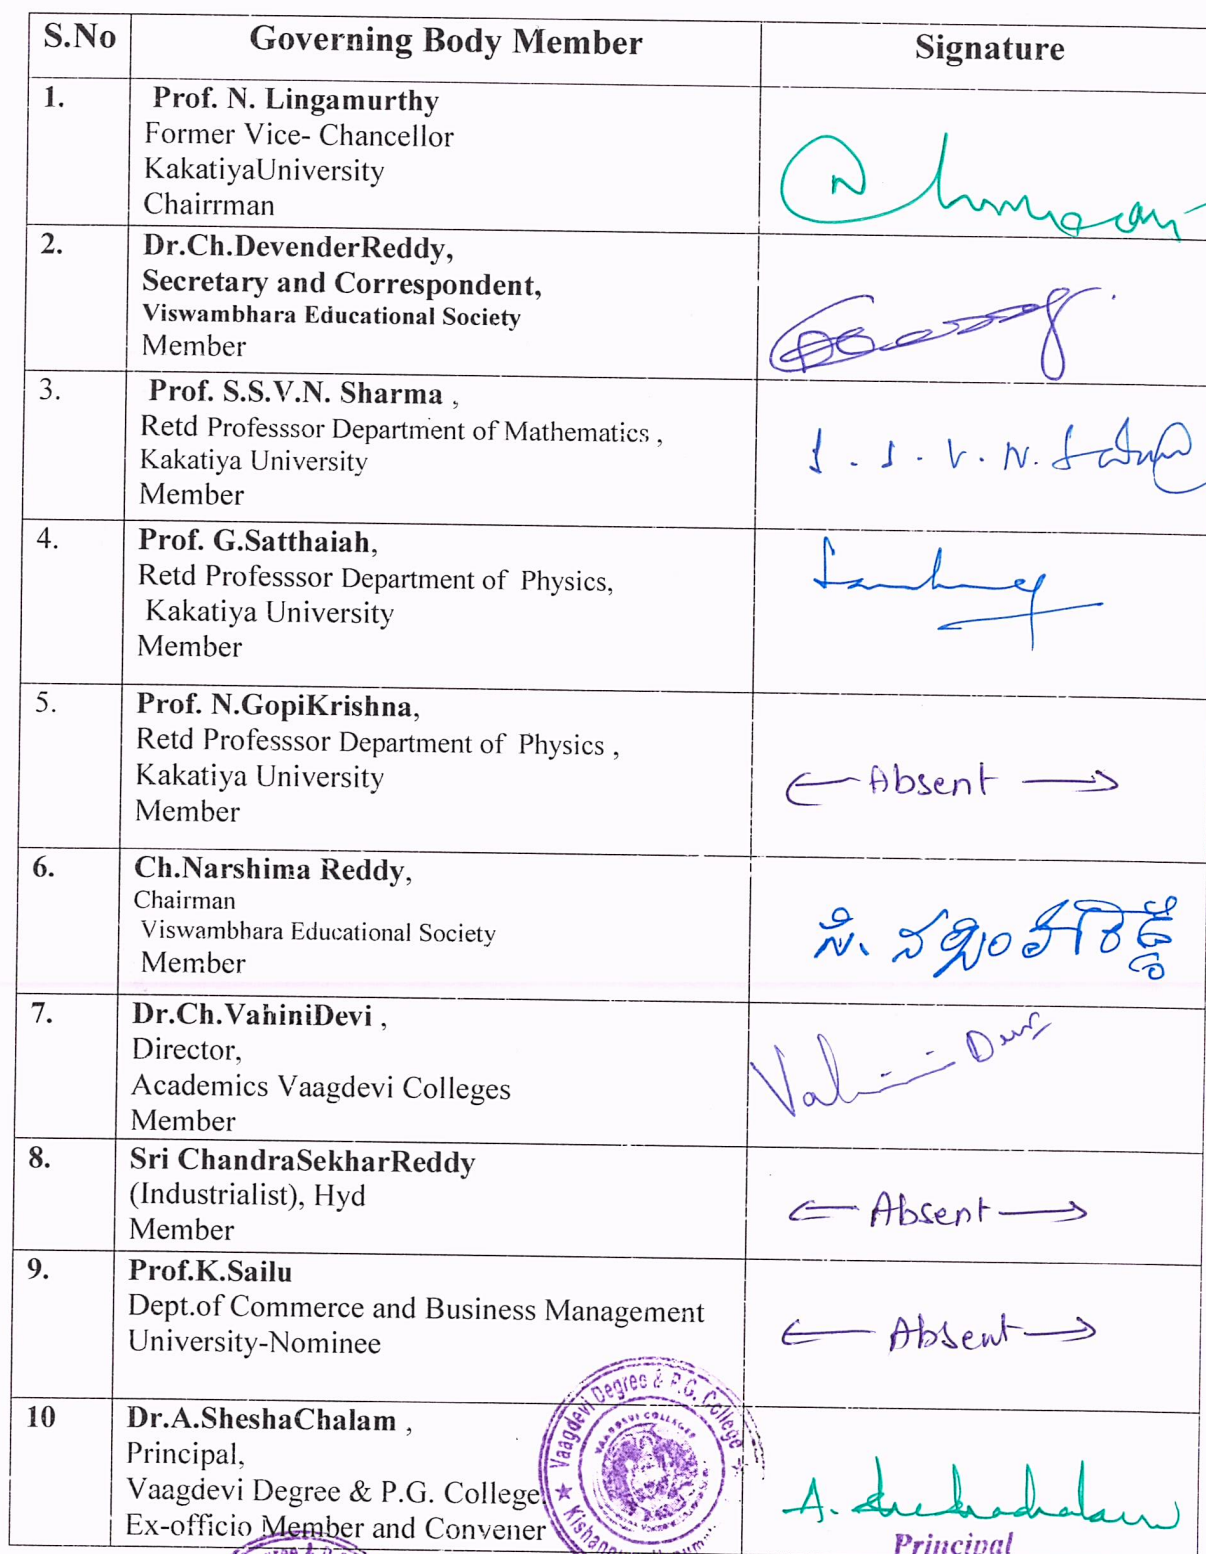 S.No Governing Body Member Signature
1. Prof. N. Lingamurthy
Former Vice- Chancellor
KakatiyaUniversity
Chairrman
2. Dr.Ch.DevenderReddy,
Secretary and Correspondent,
Viswambhara Educational Society
Member
3. Prof. S.S.V.N. Sharma ,
Retd Professsor Department of Mathematics ,
Kakatiya University
Member
S. S. V. N. Sarma
4. Prof. G.Satthaiah,
Retd Professsor Department of Physics,
Kakatiya University
Member
5. Prof. N.GopiKrishna,
Retd Professsor Department of Physics ,
Kakatiya University
Member
Absent
6. Ch.Narshima Reddy,
Chairman
Viswambhara Educational Society
Member
7. Dr.Ch.VahiniDevi ,
Director,
Academics Vaagdevi Colleges
Member
Vahini Devi
8. Sri ChandraSekharReddy
(Industrialist), Hyd
Member
Absent
9. Prof.K.Sailu
Dept.of Commerce and Business Management
University-Nominee
Absent
10 Dr.A.SheshaChalam ,
Principal,
Vaagdevi Degree & P.G. College
Ex-officio Member and Convener
Vaagdevi Degree & P.G. College
VAAGDEVI COLLEGES
A. Sheshachalam
Principal